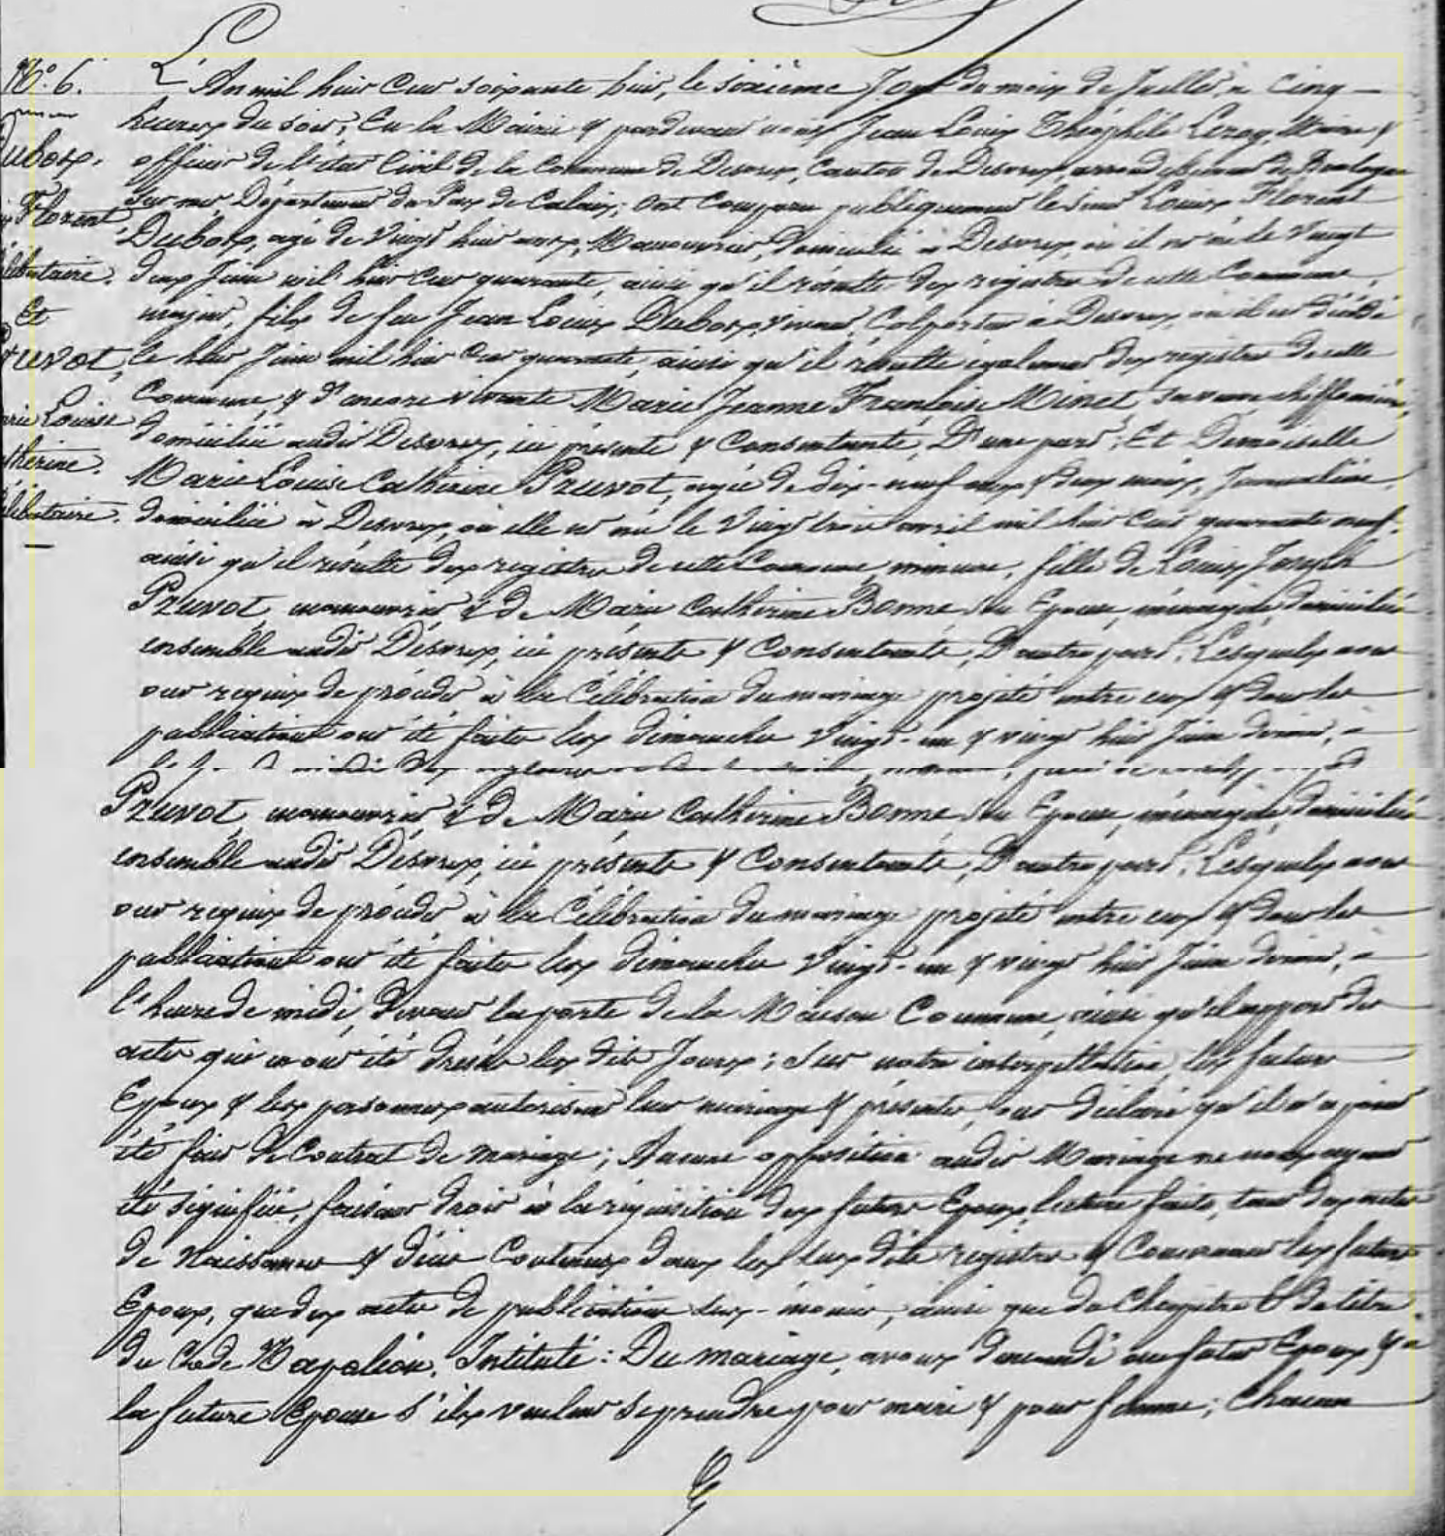 N.° 6.
L'An mil huit Cent soixante huit, le sixième Jour du mois de Juillet, à Cinq
heures du soir, En la Mairie & pardevant nous Jean Louis Théophile Leroy, Maire &
officier de l'état Civil de la Commune de Desvres, Canton de Desvres, arrondissement de Boulogne
Dubosp.
sur mer, Département du Pas de Calais; Ont Comparu publiquement le sieur Louis Florent
Florent
Dubosp, agé de Vingt huit ans, Manouvrier, domicilié à Desvres, où il est né le Vingt
célibataire.
deux Juin mil huit Cent quarante, ainsi qu'il résulte des registres de cette Commune,
Et
majeur, fils de feu Jean Louis Dubosp, vivant, Colporteur à Desvres, où il est décédé
Pruvot,
le huit Juin mil huit Cent quarante, ainsi qu'il résulte également des registres de cette
Commune, & d'encore vivante Marie Jeanne Françoise Minet, sa veuve chiffonnière,
Marie Louise
domiciliée audit Desvres, ici présente & Consentante, D'une part; Et Demoiselle
Catherine.
Marie Louise Catherine Pruvot, agée de dix-neuf ans & deux mois, Journalière,
célibataire.
domiciliée à Desvres, où elle est née le Vingt trois avril mil huit Cent quarante neuf,
ainsi qu'il résulte des registres de cette Commune, mineure, fille de Louis Joseph
Pruvot, manouvrier & de Marie Catherine Bonne, son Epouse, ménagère, domiciliés
ensemble audit Désvres, ici présents & Consentants, D'autre part; Lesquels nous
ont requis de procéder à la Célébration du mariage projeté entre eux & dont les
publications ont été faites les dimanches Vingt-un & vingt huit Juin dernier, à
Pruvot, manouvrier & de Marie Catherine Bonne, son Epouse, ménagère, domiciliés
ensemble audit Désvres, ici présents & Consentants, D'autre part; Lesquels nous
ont requis de procéder à la Célébration du mariage projeté entre eux & dont les
publications ont été faites les dimanches Vingt-un & vingt huit Juin dernier, à
l'heure de midi, devant la porte de la Maison Commune, ainsi qu'il appert des
actes qui en ont été dressés les dits Jours; Sur notre interpellation, les futurs
Epoux & les personnes autorisant leur mariage & présentes, ont déclaré qu'il n'a point
été fait de Contrat de mariage; Aucune opposition audit Mariage ne nous ayant
été signifiée, faisant droit à la réquisition des futurs Epoux, lecture faite, tant des actes
de Naissances & décès Contenus dans les sus dits registres & Concernant les futurs
Epoux, que des actes de publications sus-énoncés, ainsi que du Chapitre 6 du titre
du Code Napoléon, Intitulé: Du mariage, avons demandé au futur Epoux & à
la future Epouse s'ils veulent se prendre pour mari & pour femme; Chacun